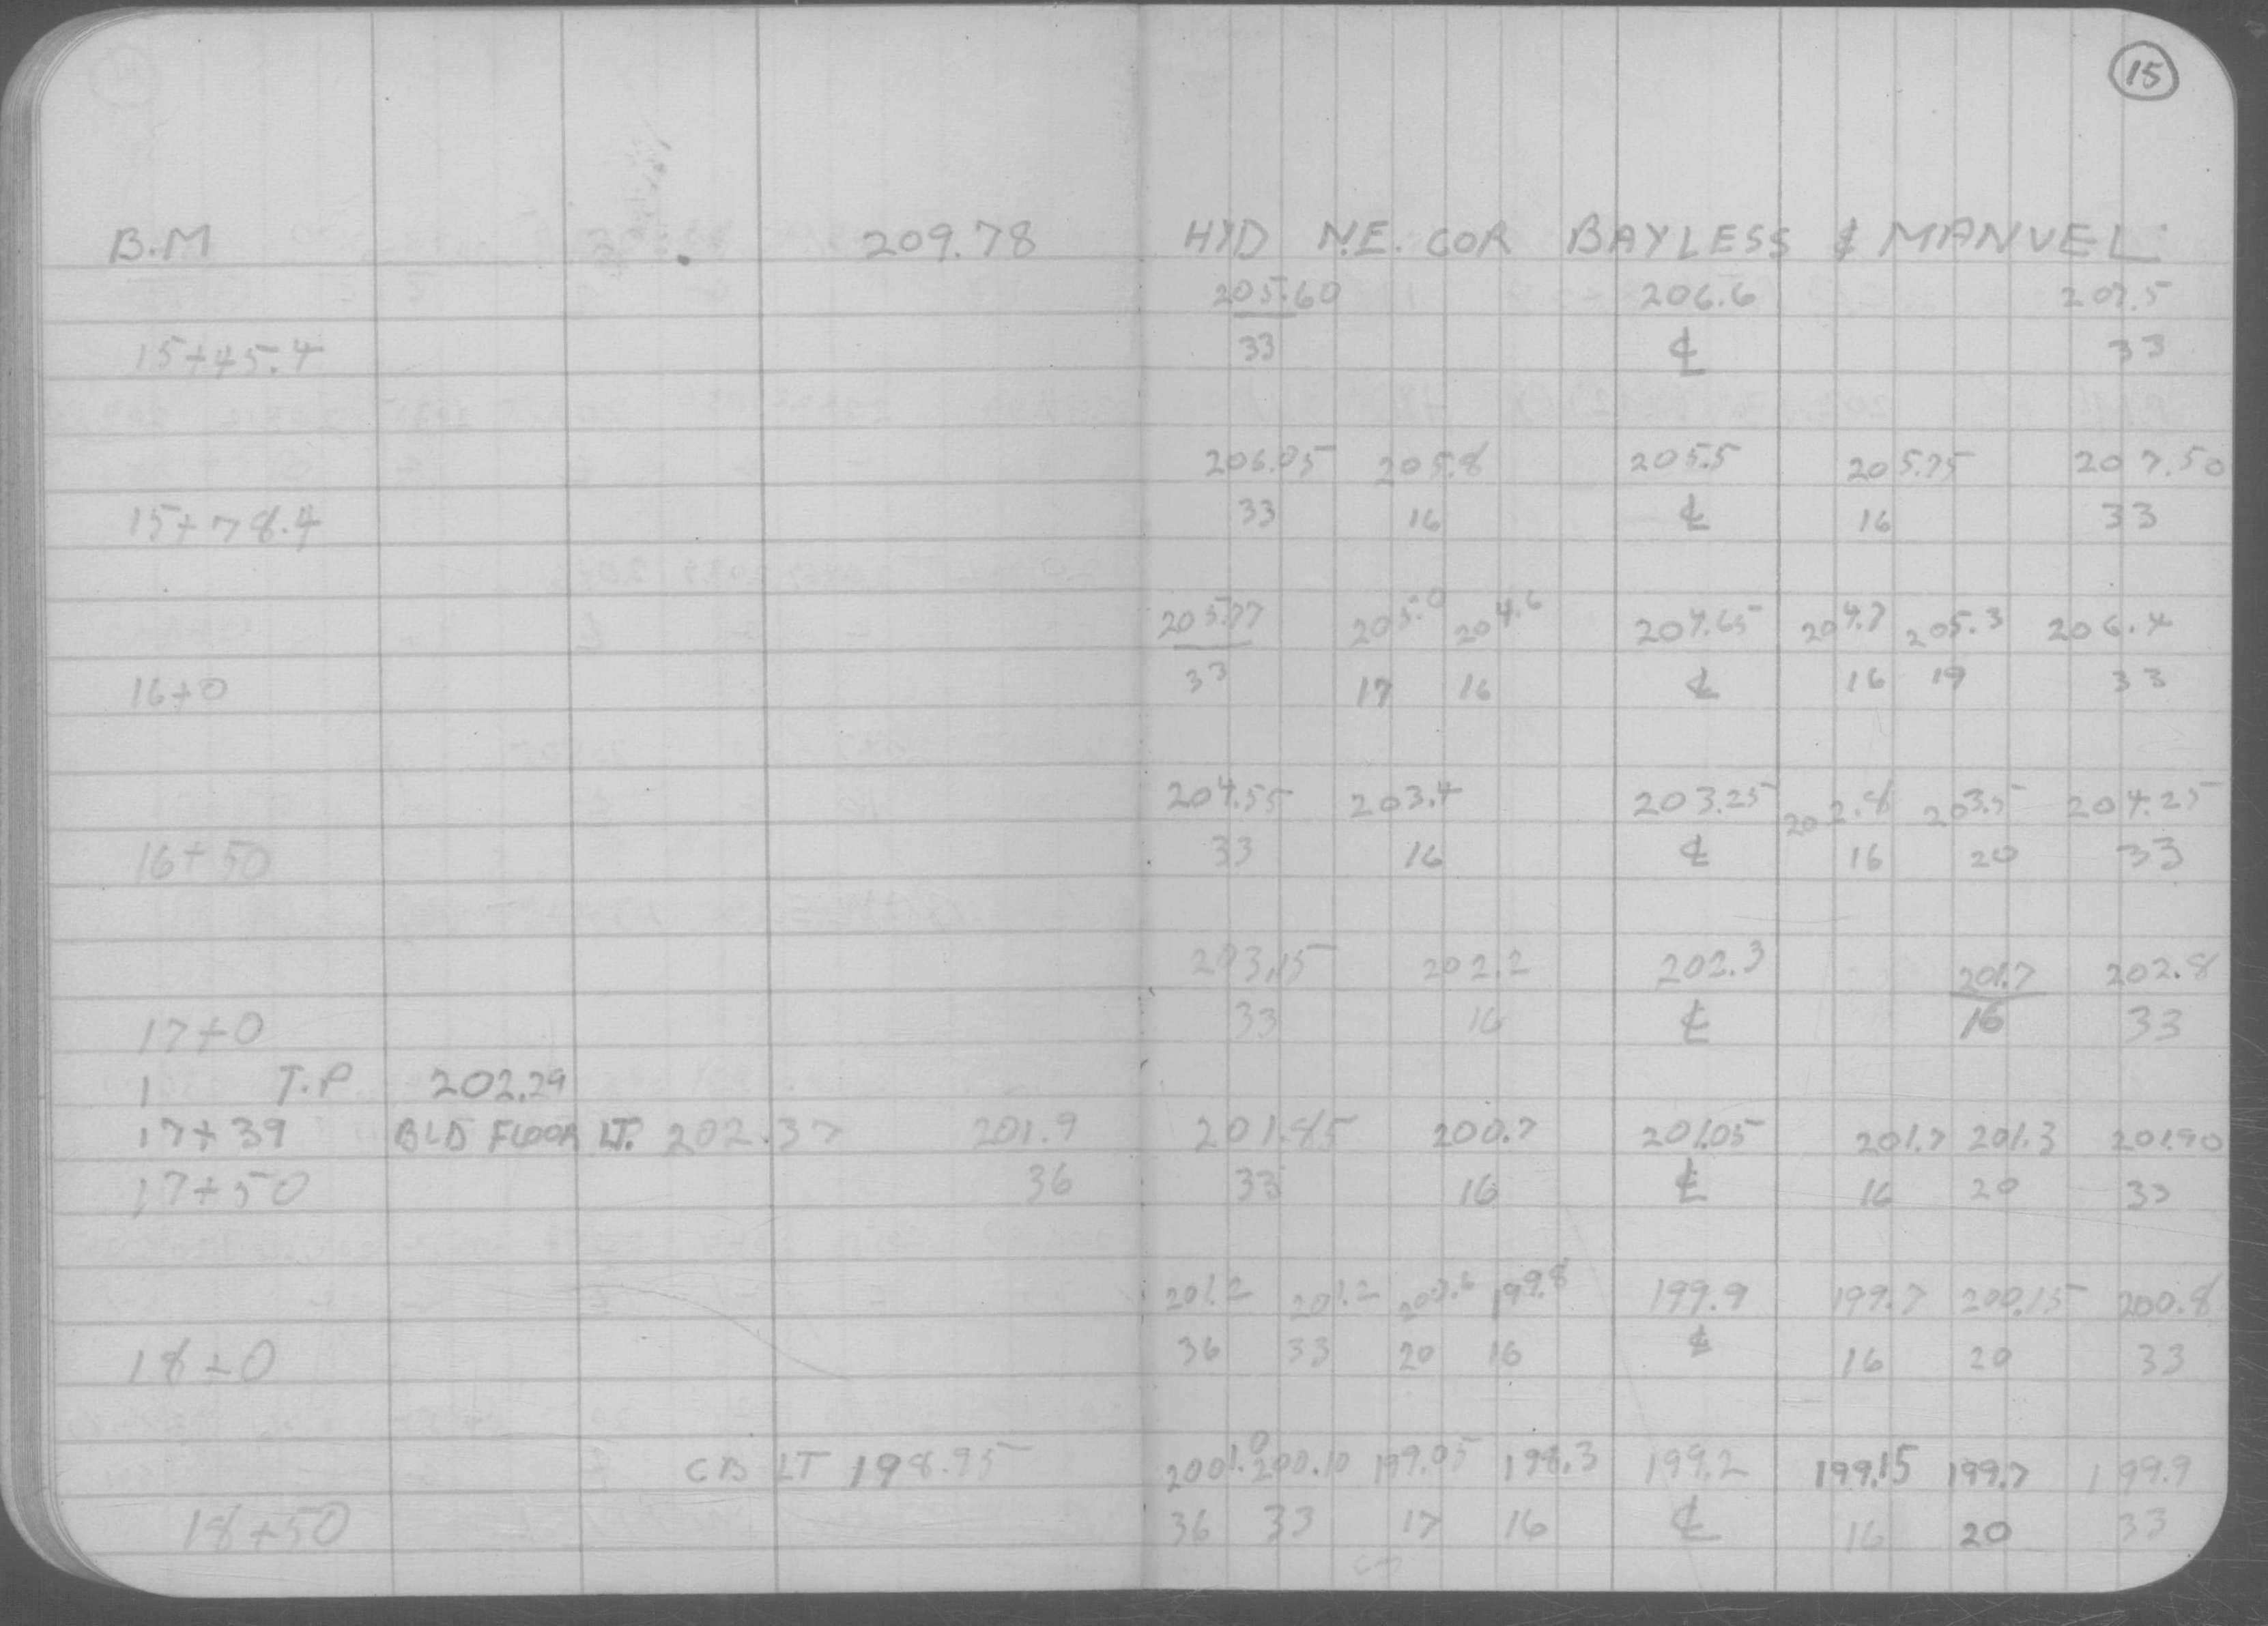 15
B.M 209.78 HYD N.E. COR BAYLESS & MANUEL
205.60 206.6 207.5
15+45.4 33 ℄ 33
206.05 205.8 205.5 205.75 207.50
15+78.4 33 16 ℄ 16 33
205.77 205.0 204.6 204.65 204.7 205.3 206.4
16+0 33 17 16 ℄ 16 19 33
204.55 203.4 203.25 202.8 203.5 204.25
16+50 33 16 ℄ 16 20 33
203.15 202.2 202.3 201.7 202.8
17+0 33 16 ℄ 16 33
1 T.P 202.29
17+39 BLD FLOOR LT. 202.37 201.9 201.85 200.7 201.05 201.7 201.3 201.90
17+50 36 33 16 ℄ 16 20 33
201.2 201.2 200.6 199.8 199.9 199.7 200.15 200.8
18+0 36 33 20 16 ℄ 16 20 33
CB LT 198.95 200.10 199.05 198.3 199.2 199.15 199.7 199.9
18+50 36 33 17 16 ℄ 16 20 33